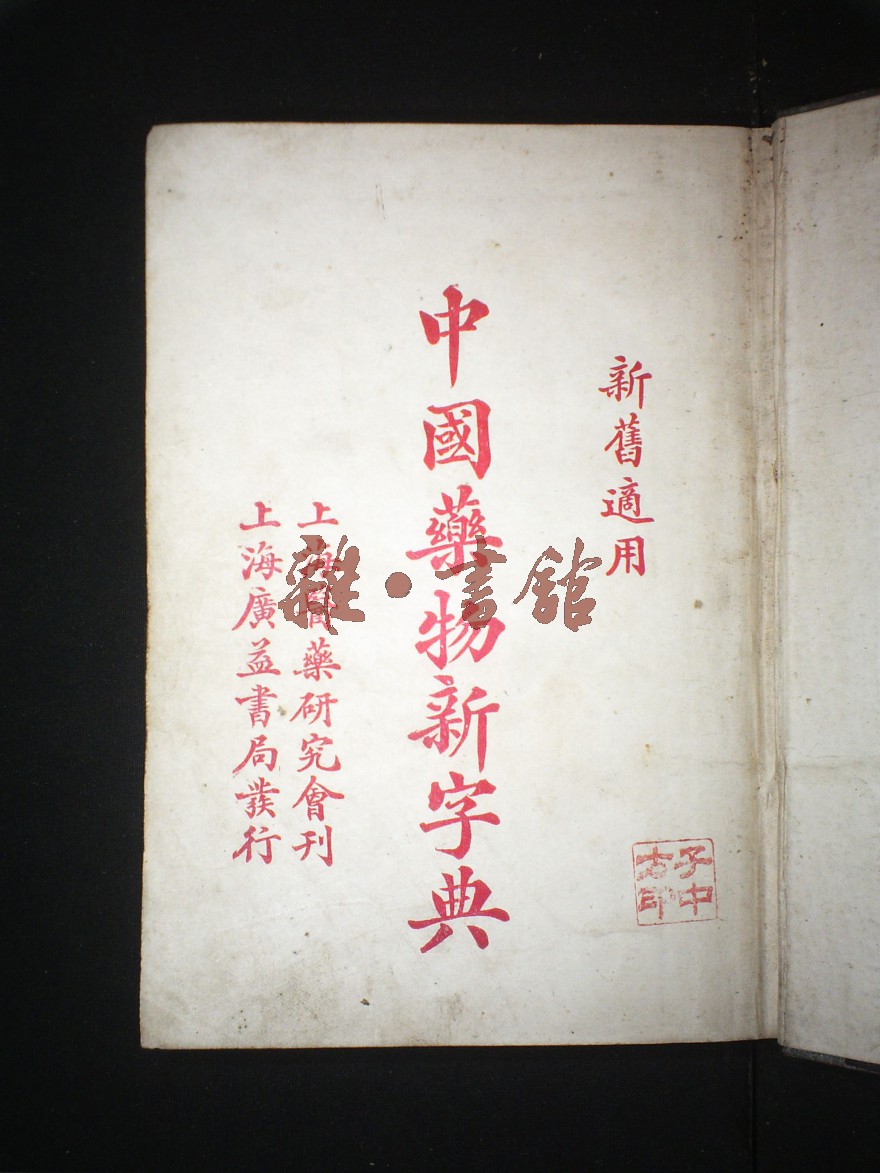 新舊適用
中國藥物新字典
上海醫藥研究會刊
上海廣益書局發行
子中
方印
雜·書館